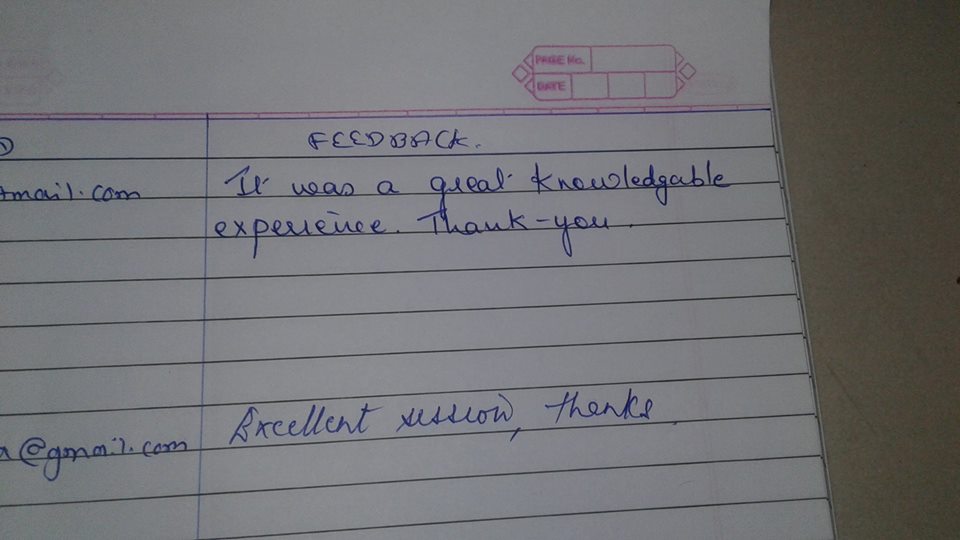 PAGE No.
DATE
FEEDBACK.
tmail.com It was a great knowledgable
experience. Thank-you.
Excellent session, thanks
@gmail.com